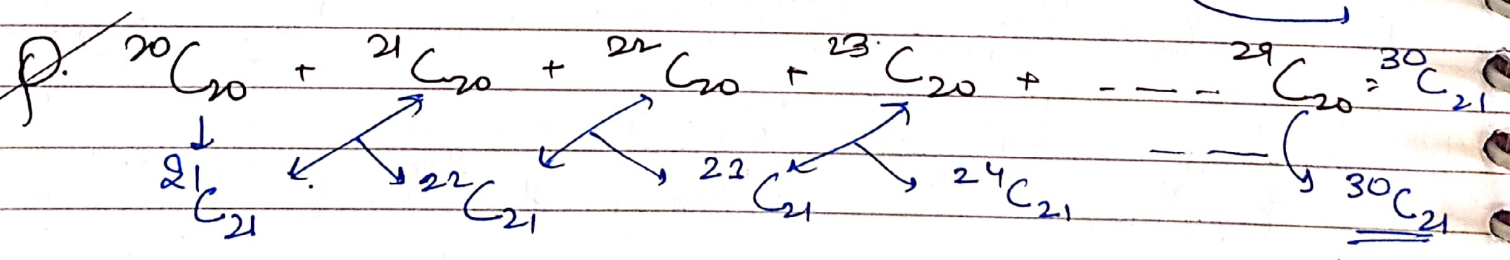 Q. ²⁰C₂₀ + ²¹C₂₀ + ²²C₂₀ + ²³C₂₀ + ---- ²⁹C₂₀ = ³⁰C₂₁
²¹C₂₁ ²²C₂₁ ²³C₂₁ ²⁴C₂₁ -- ³⁰C₂₁